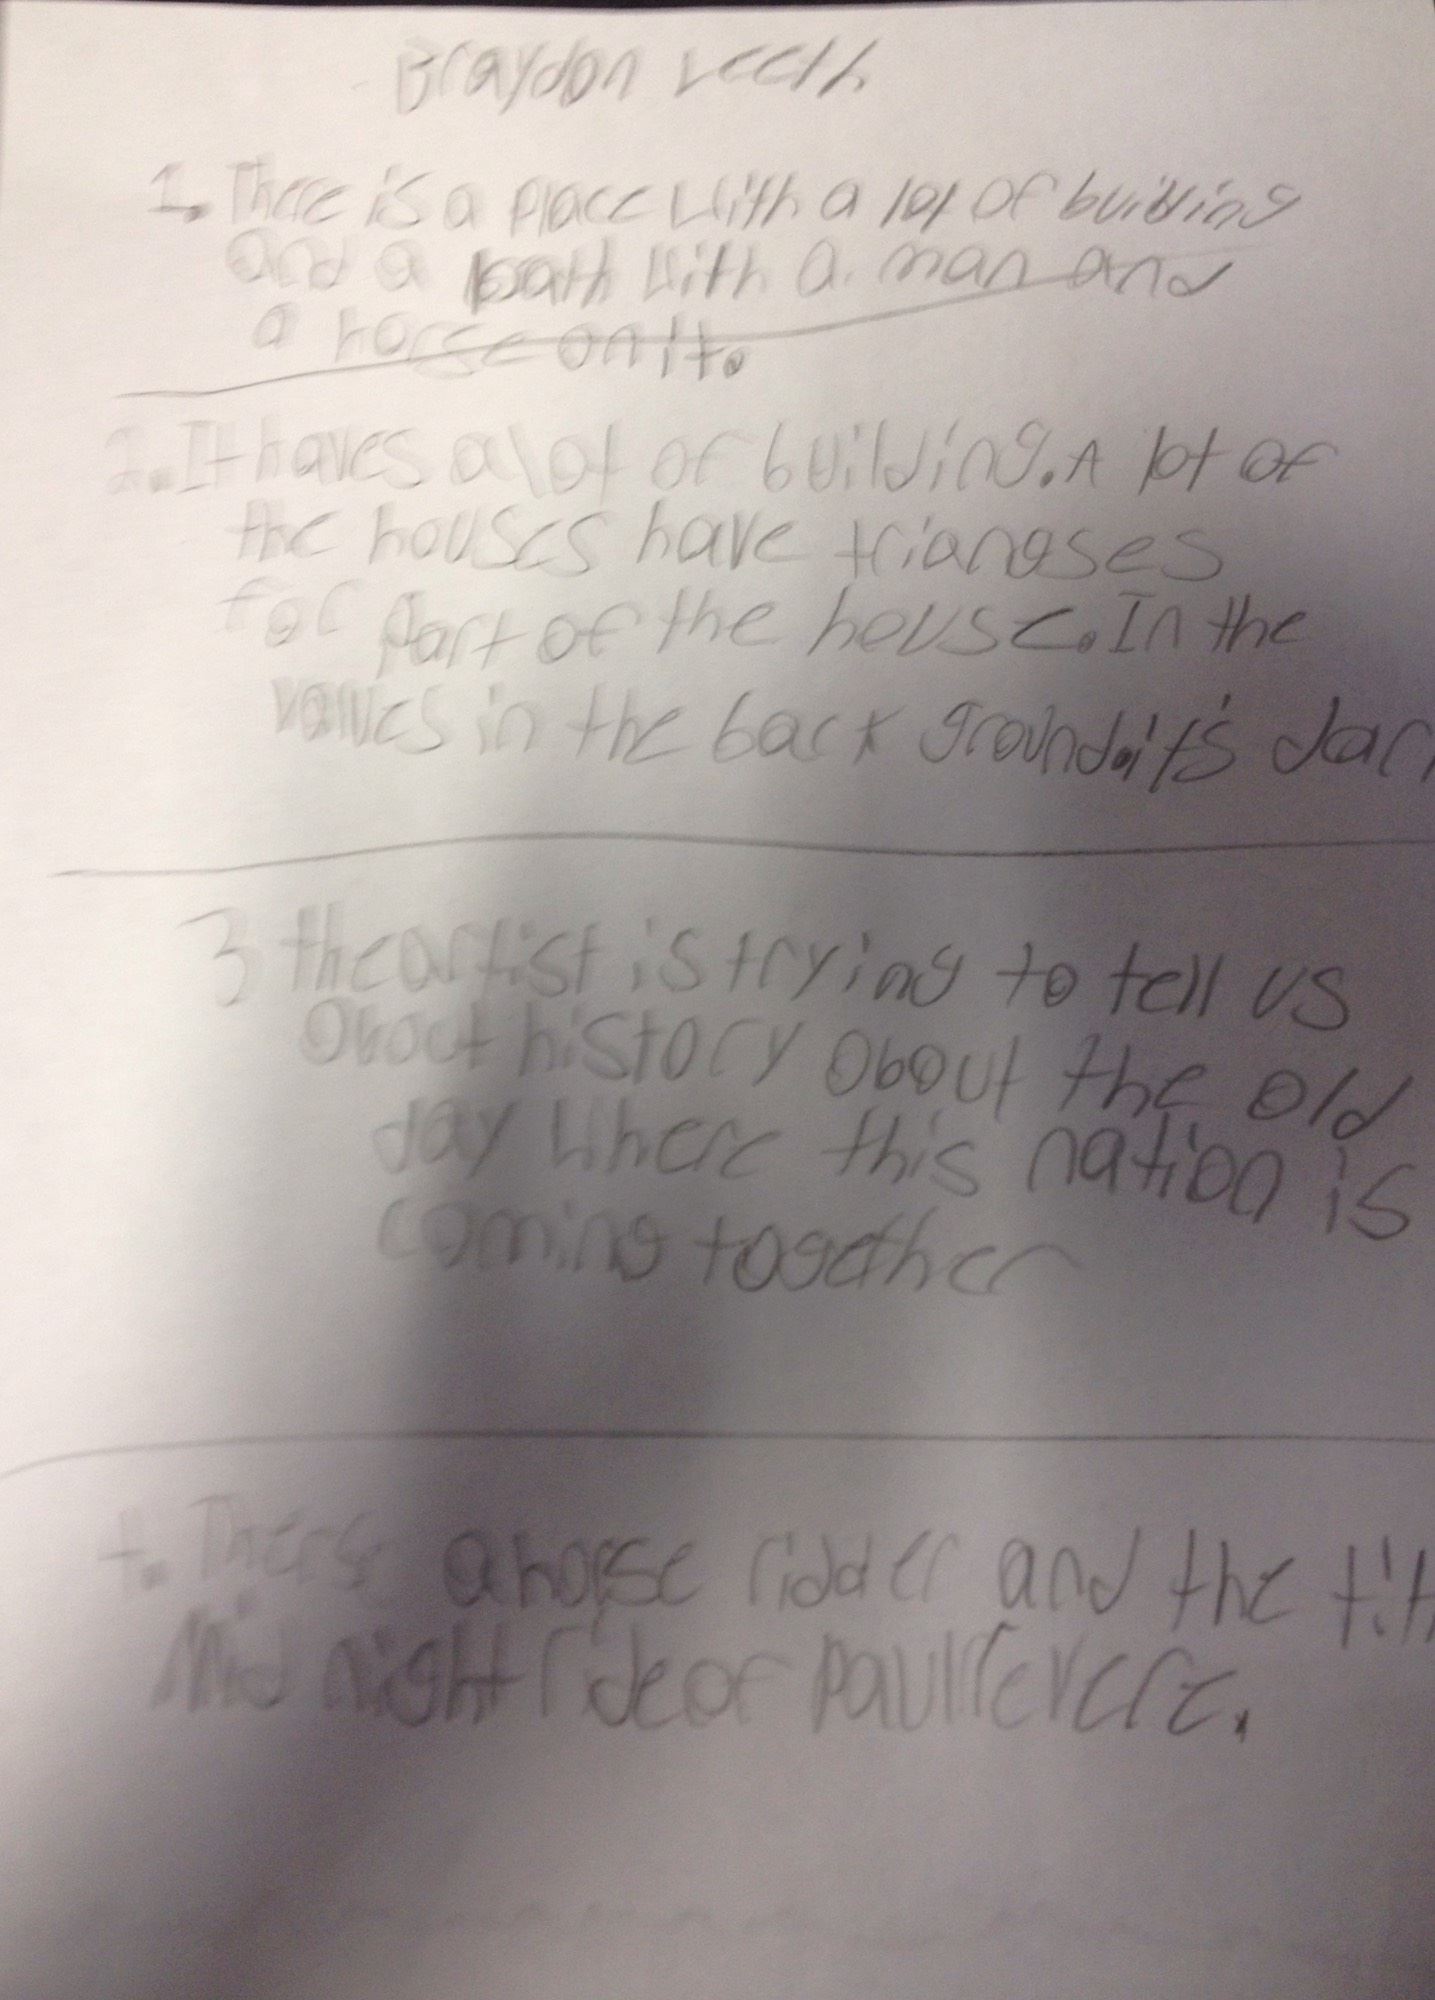 Braydon Leeth
1. There is a place with a lot of building
and a path with a man and
a horse on it.
2. It haves a lot of building. A lot of
the houses have triangses
for part of the house. In the
values in the back ground it's dar
3 the artist is trying to tell us
about history about the old
day where this nation is
coming together
4. There a horse ridder and the tit
Mid night ride of paul revere.